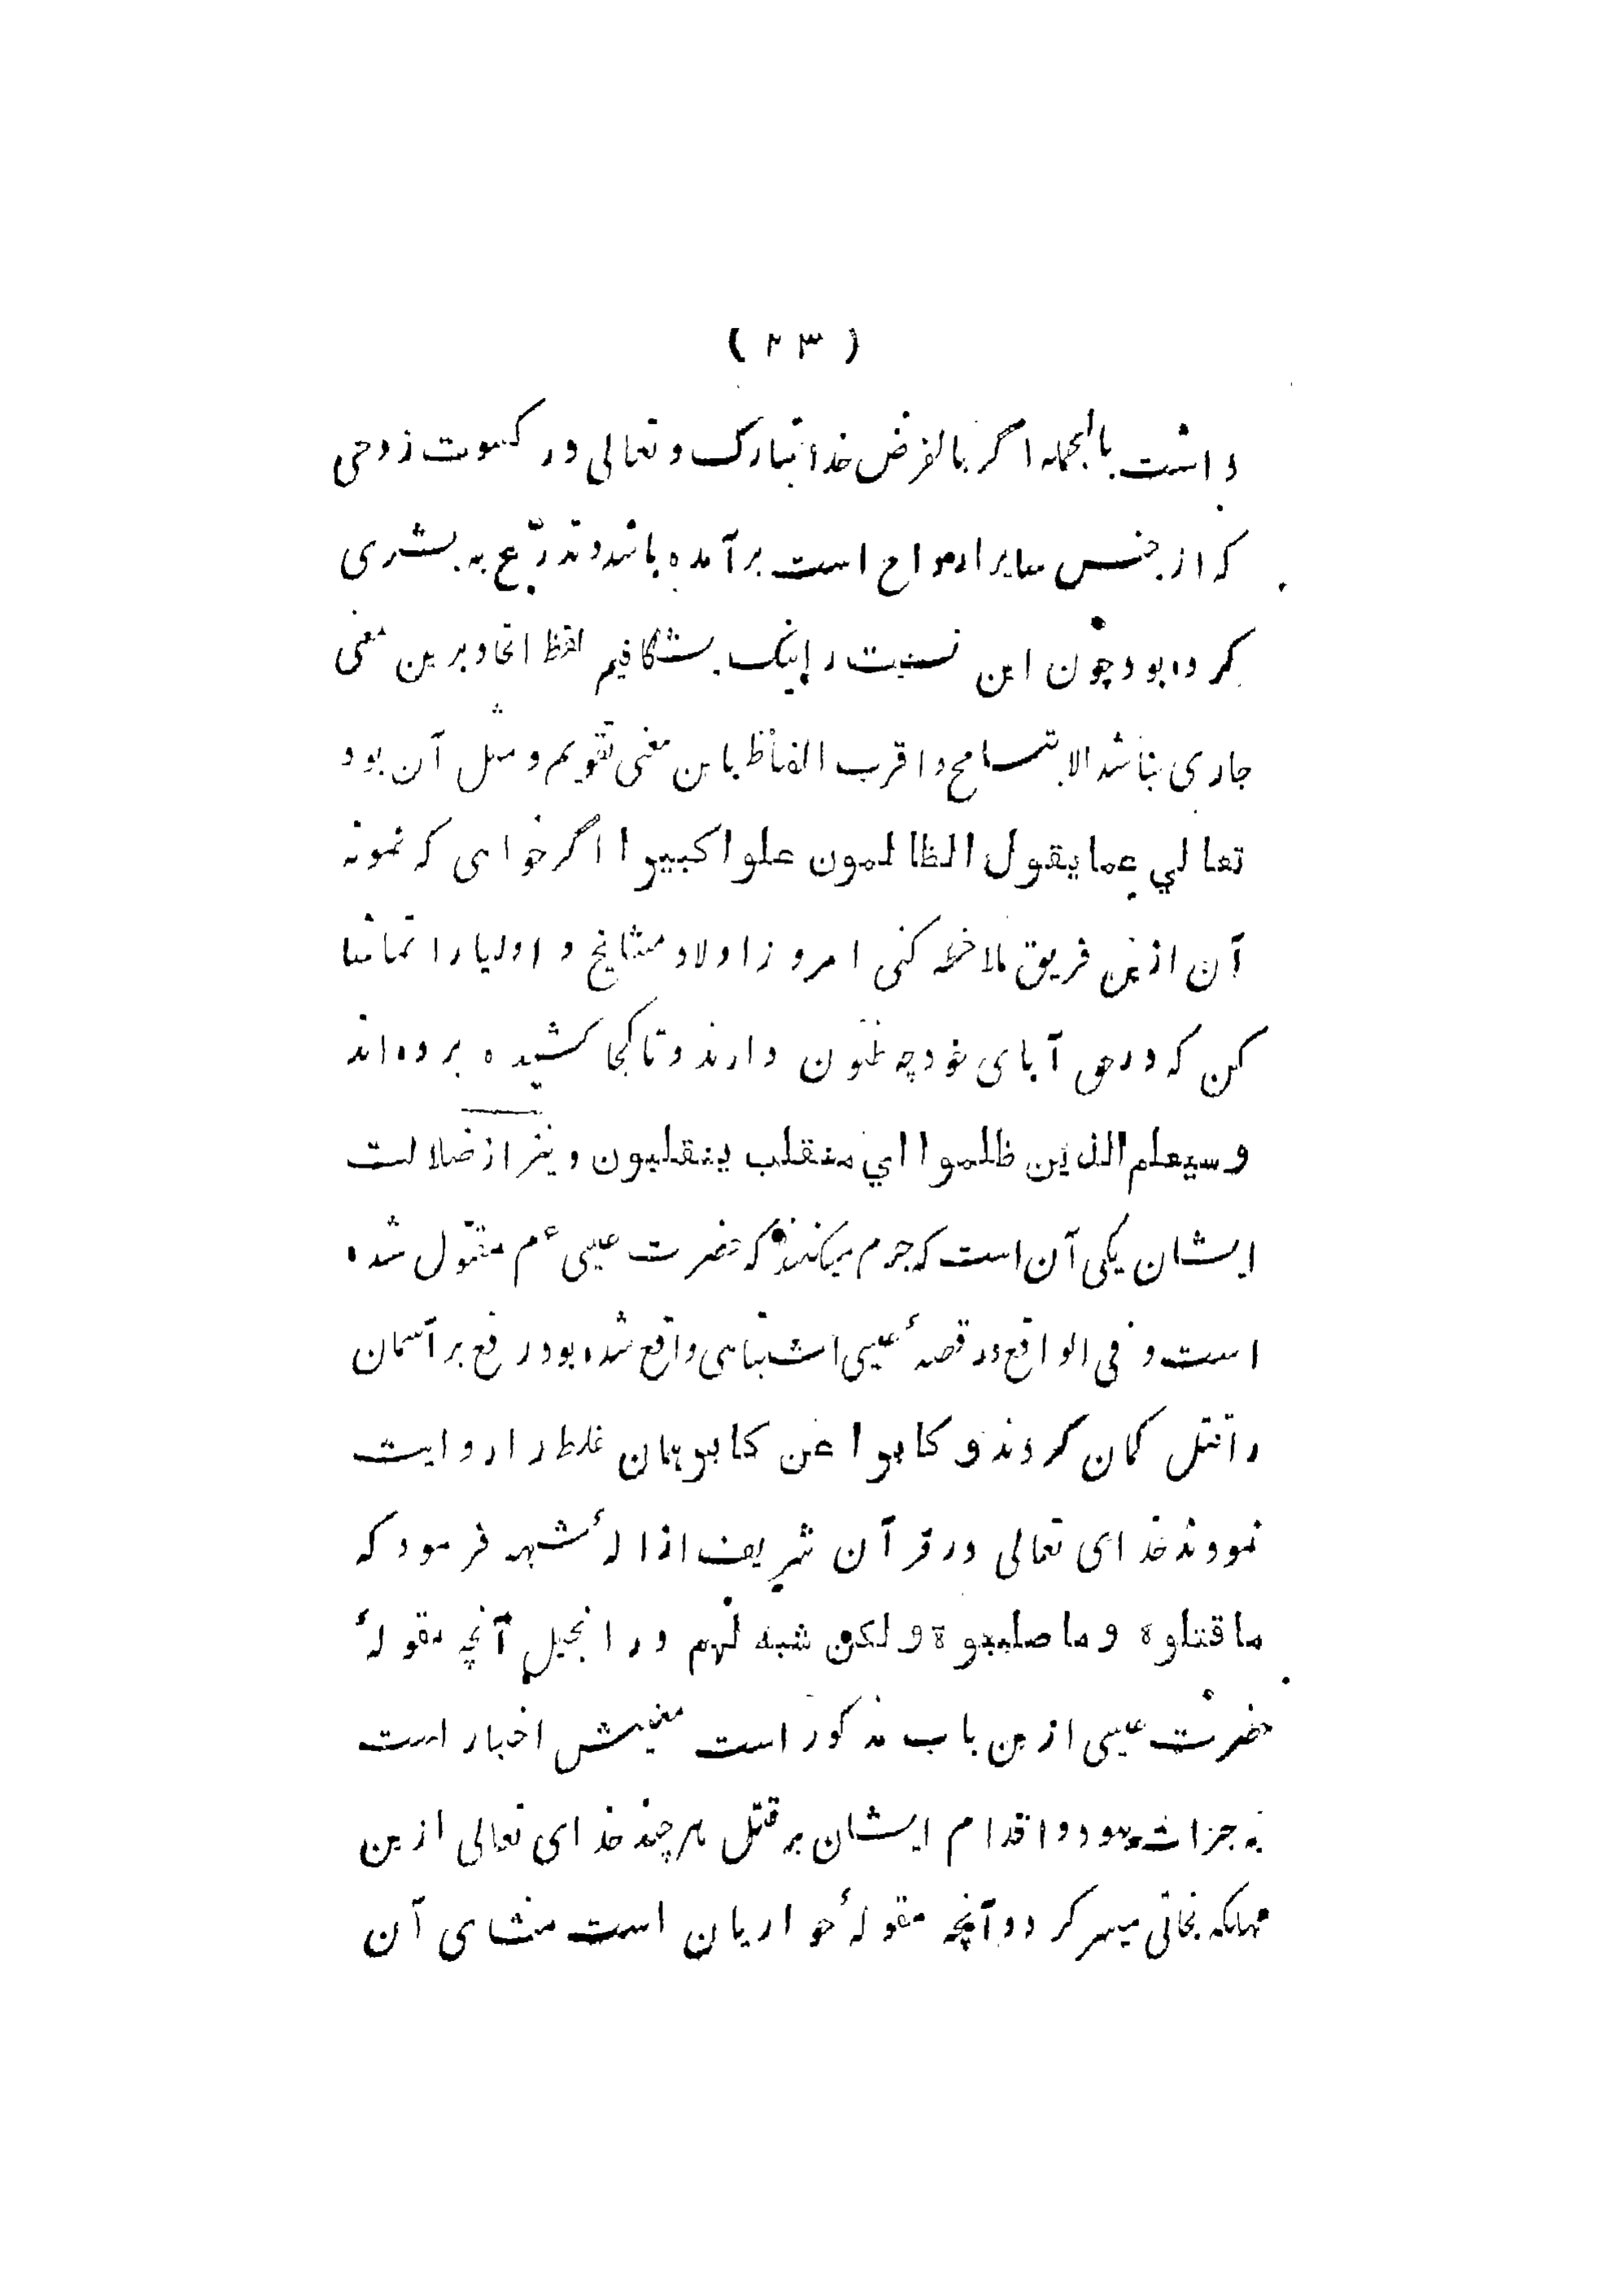 ( ۲۳ )
داشت بالجمله اگر بالفرض خدا تبارک و تعالی در کسوت روحی
که از جنس سایر ارواح است برآمده باشد و تدرّع به بشری
کرده بود چون این نسبت را نیک بشگافیم لفظ اتحاد برین معنی
جاری نباشد الا بتسامح و اقرب الفاظ باین معنی تقویم و مثل آن بود
تعالي عما یقول الظالمون علوا کبیرا اگر خواهی که نمونه
آن ازین فریق ملاحظه کنی امروز اولاد مشایخ و اولیا را تماشا
کن که در حق آبای خود چه ظنون دارند و تا کجا کشیده برده اند
و سیعلم الذین ظلموا اي منقلب ینقلبون و نیز از ضلالت
ایشان یکی آن است که جزم میکنند که حضرت عیسی ء م مقتول شده
است و فی الواقع در قصهٔ عیسی اشتباهی واقع شده بود رفع بر آسمان
را قتل گمان کردند و کابرا عن کابر همان غلط را روایت
نمودند خدای تعالی در قرآن شریف ازالهٔ شبهه فرمود که
ما قتلوه و ما صلبوه و لکن شبه لهم و در انجیل آنچه مقولهٔ
حضرت عیسی ازین باب مذکور است معنیش اخبار است
به جرأت یهود و اقدام ایشان بر قتل هر چند خدای تعالی ازین
مهلکه نجاتی میسر کرد و آنچه مقولهٔ حواریان است منشای آن